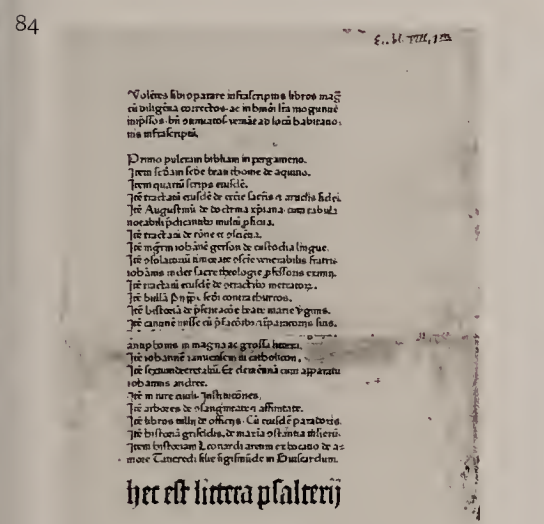 84
Volētes sibi ꝯparare infrascriptos libros mag̃
cū diligētia correctos. ac in hmōi lr̄a moguntie
impressos. bn̄ ꝯtinuatos. veniāt ad locū habitatio-
nis infrascriptū.
Primo pulcram bibliam in pergameno.
Item scd̄am scd̄e beati thome de aquino.
Item quartū scripti eiusdē.
Itē tractatū eiusdē de eccīe sacrīs ⁊ articlīs fidei.
Itē Augustinū de doctrina xp̄iana. cum tabula
notabili p̄dicantibꝰ multū ꝓficua.
Itē tractatū de rōne et ꝯsciētia.
Itē mgr̄m iohānē gerson de custodia lingue.
Itē ꝯsolatoriū timorate ꝯscīe venerabilis fratris
iohānis nider sacre theologie ꝓfessoris eximij.
Itē tractatū eiusdē de ꝯtractibꝰ mercatoꝝ.
Itē bullā pij pape scd̄i contra thurcos.
Itē historiā de p̄sentatōe beate marie ꝟginis.
Itē canonē misse cū p̄facōibꝰ ⁊ īparatorijs suis.
antiphonis in magna ac grossa littera.
Itē iohannē ianuensem in catholicon.
Itē sextum decretaliū. Et clemētinā cum apparatu
iohannis andree.
Itē in iure ciuili. Institucōnes.
Itē arbores de ꝯsanguineitate ⁊ affinitate.
Itē libros tullij de officijs. Cū eiusdē paradoxis.
Itē historiā griseldis. de maxīa ꝯstantia mulierū.
Item historiam Leonardi aretini ex bocatio de a-
more Tancredi filie sigismūde in Guiscardum.
hec est littera psalterij